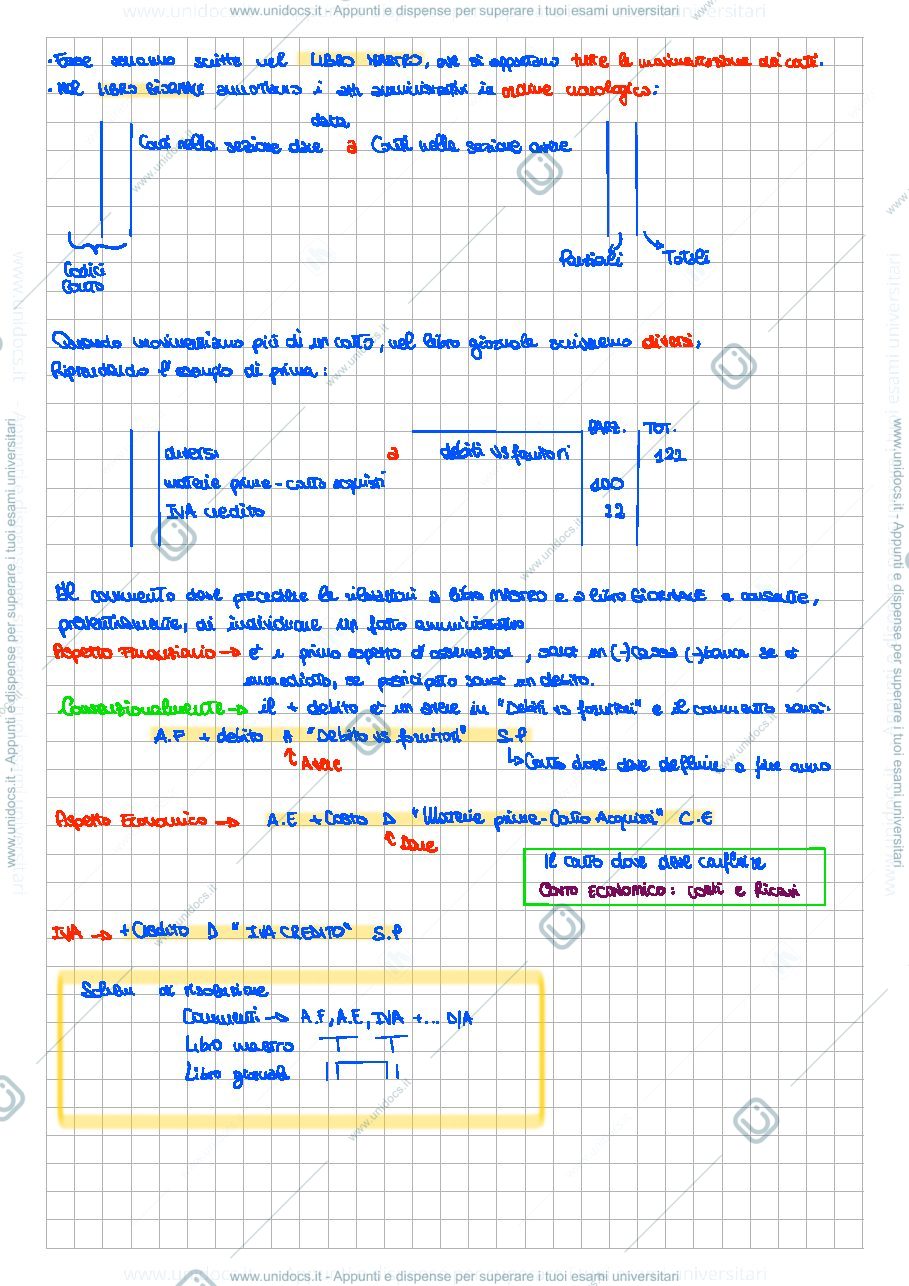 www.unidocs.it - Appunti e dispense per superare i tuoi esami universitari
· Esse saranno scritte nel LIBRO MASTRO, ove si appuntano tutte le movimentazione dei conti.
· Nel LIBRO GIORNALE annotiamo i atti amministrativi in ordine cronologico:
data
Conti nella sezione dare a Conti nella sezione avere
Codici
Conto
Parziali Totali
Quando movimentiamo più di un conto, nel libro giornale scriviamo diversi;
Riprendendo l'esempio di prima:
PARZ. TOT.
diversi a debiti vs fornitori 122
materie prime - conto acquisti 100
IVA credito 22
Il commento deve precedere le rilevazioni a libro MASTRO e a libro GIORNALE e consente,
preventivamente, di individuare un fatto amministrativo
Aspetto Finanziario → è il primo aspetto d'osservazione, sarà un (-)cassa (-)banca se è
immediato, se posticipato sarà un debito.
Convenzionalmente → il + debito è un avere in "Debiti vs fornitori" e il commento sarà:
A.F + debito A "Debito vs fornitori" S.P
↑ Avere
↳ Conto dove deve defluire a fine anno
Aspetto Economico → A.E + Costo D "Materie prime - Conto Acquisti" C.E
↑ Dare
Il conto dove deve confluire
Conto ECONOMICO: costi e Ricavi
IVA → + Credito D "IVA CREDITO" S.P
Schema di risoluzione
Commenti → A.F, A.E, IVA +... D/A
Libro mastro
Libro giornale
www.unidocs.it - Appunti e dispense per superare i tuoi esami universitari